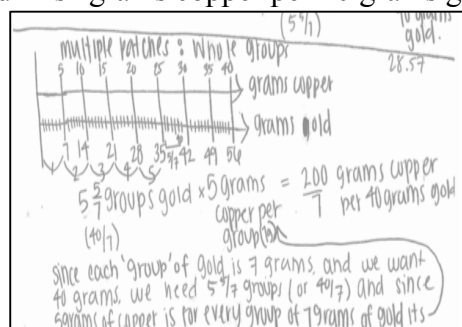 (5 5/7)
gold.
28.57
multiple batches : Whole groups
5 10 15 20 25 30 35 40
grams copper
grams gold
7 14 21 28 35 5/7 42 49 56
1 2 3 4 5
5 5/7 groups gold × 5 grams copper per group = 200/7 grams copper per 40 grams gold
(40/7)
since each 'group' of gold is 7 grams, and we want
40 grams, we need 5 5/7 groups (or 40/7) and since
5grams of copper is for every group of 7grams of gold its